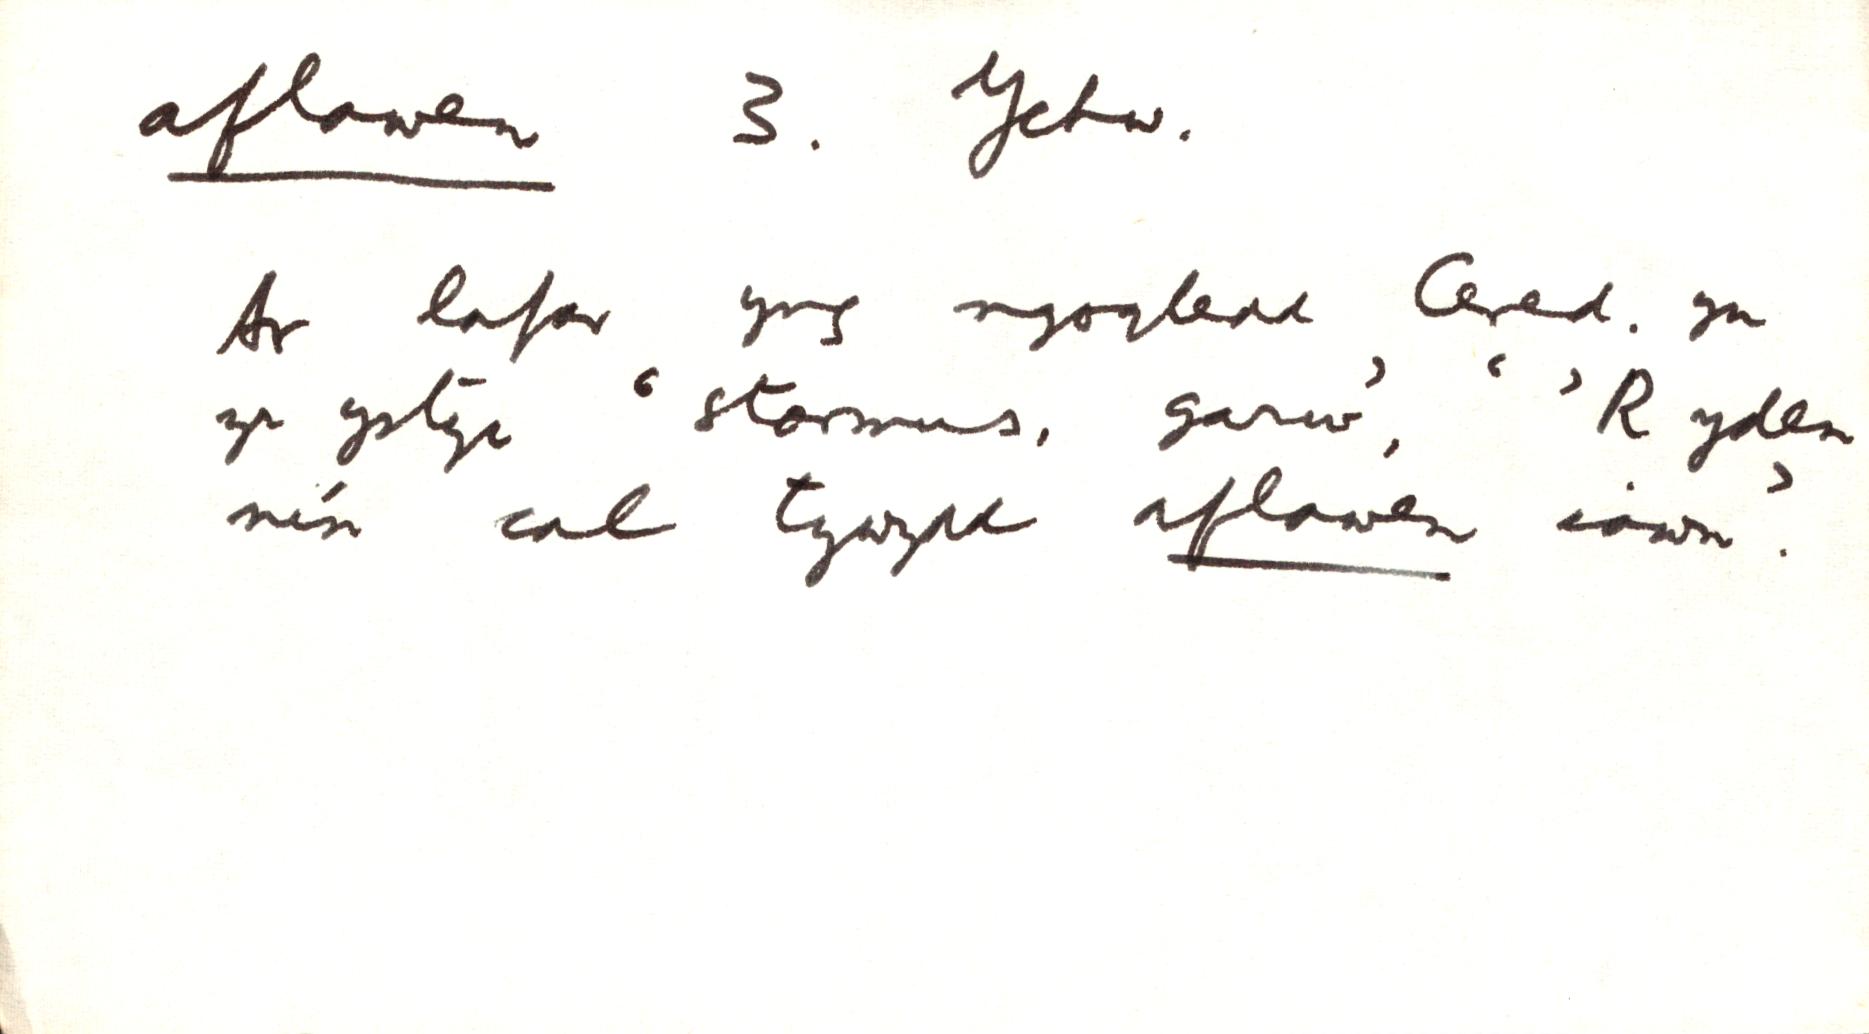 aflawen 3. Ychw.
Ar lafar yng ngogledd Cered. yn
yr ystyr ‘stormus, garw’, ‘’R yden
ni'n cal tywydd aflawen iawn’.